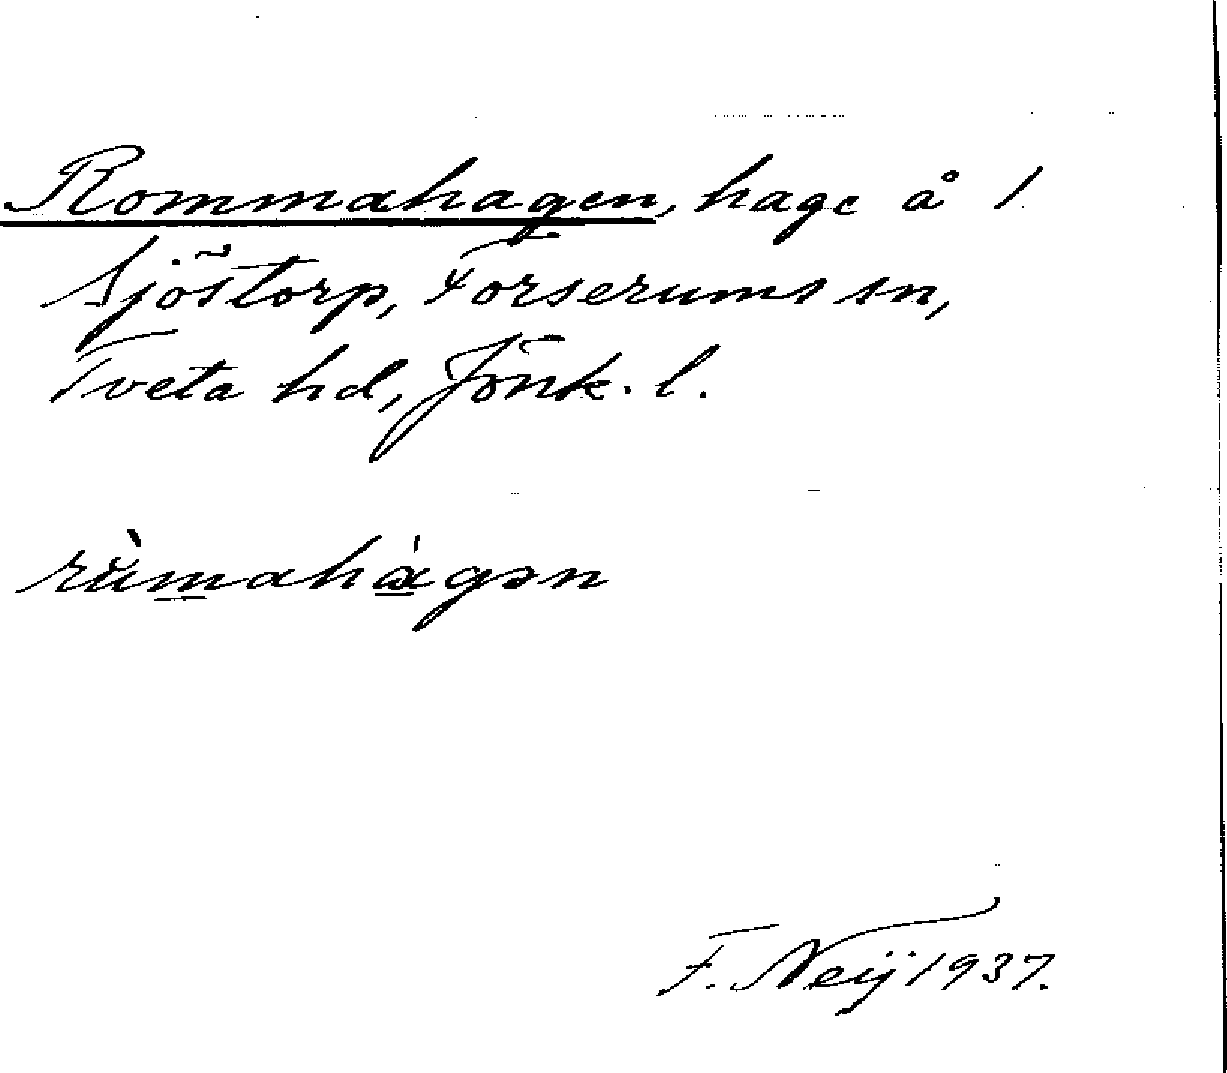 Rommahagen, hage å 1
Sjöstorp, Forserums sn,
Tveta hd, Jönk. l.
rùmahágən
F. Neij 1937.